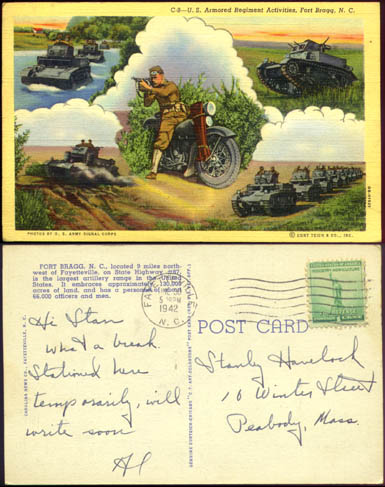 C-5—U. S. Armored Regiment Activities, Fort Bragg, N. C.
PHOTOS BY U. S. ARMY SIGNAL CORPS
© CURT TEICH & CO., INC.
FORT BRAGG, N. C., located 9 miles north-
west of Fayetteville, on State Highway
is the largest artillery range in the United
States. It embraces approximately 130,000
acres of land, and has a personnel of about
66,000 officers and men.
CAROLINA NEWS CO., FAYETTEVILLE, N. C.
5 PM
1942
N. C.
POST CARD
Hi Stan
what a break.
Stationed here
temporarily, will
write soon
Al
Stanley Havelock
10 Winter Street
Peabody, Mass.